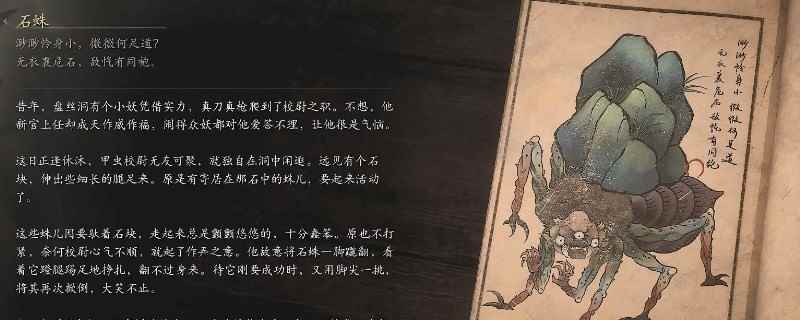 石蛛
渺渺怜身小，微微何足道？
无衣裹危石，敢忱有同袍。
昔年，盘丝洞有个小妖凭借实力，真刀真枪爬到了校尉之职。不想，他
新官上任却成天作威作福，闹得众妖都对他爱答不理，让他很是气恼。
这日正逢休沐，甲虫校尉无友可聚，就独自在洞中闲逛。远见有个石
块，伸出些细长的腿足来。原是有寄居在那石中的蛛儿，要起来活动
了。
这些蛛儿因要驮着石块，走起来总是颤颤悠悠的，十分蠢笨。原也不打
紧，奈何校尉心气不顺，就起了作弄之意。他故意将石蛛一脚踢翻，看
着它蹬腿踢足地挣扎，翻不过身来。待它刚要成功时，又用脚尖一挑，
将其再次掀倒，大笑不止。
渺渺怜身小微微何足道
无衣裹危石敢忱有同袍